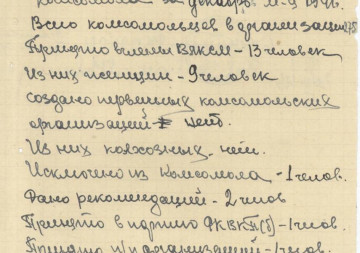 комсомола за декабрь м-ц 1946.
Всего комсомольцев в организации
Принято в члены ВЛКСМ - 13 человек
Из них женщин - 9 человек
создано первичных комсомольских
организаций нет.
Из них колхозных - нет.
Исключено из комсомола - 1 челов.
Дано рекомендаций - 2 челов
Принято в партию РК ВКП(б) - 1 челов.
Принято п/п организацией - 1 челов.